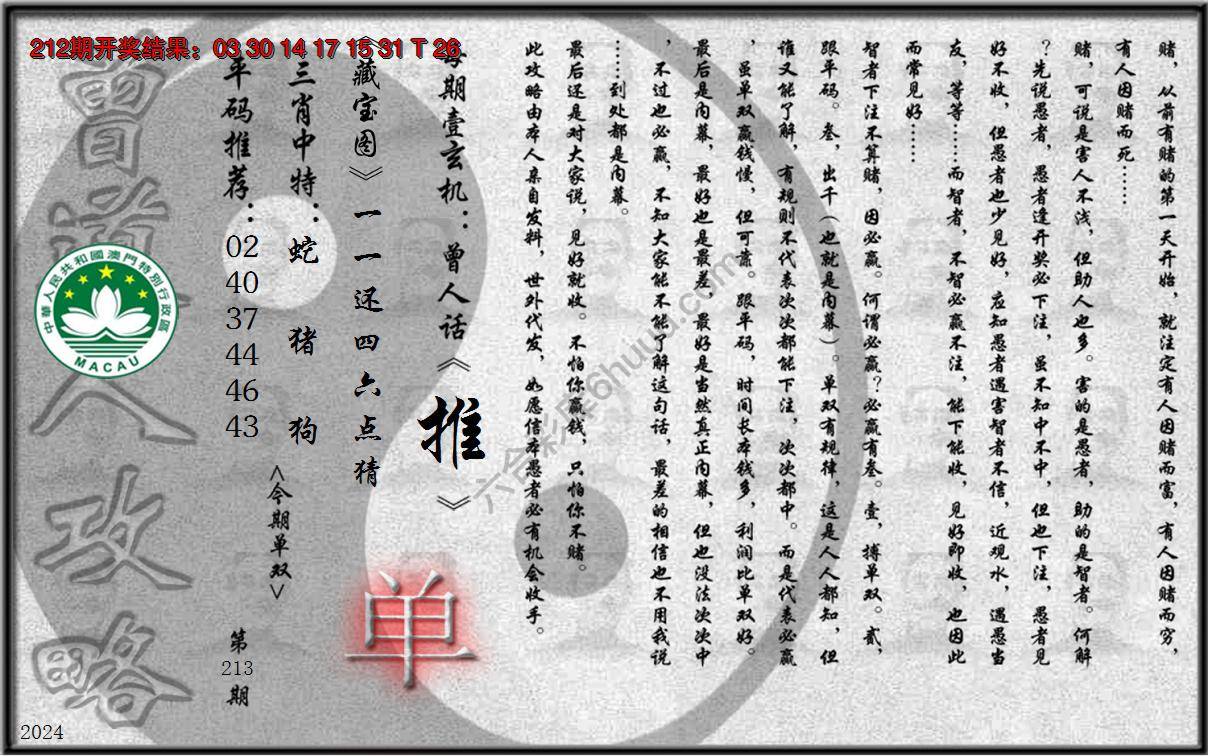 212期开奖结果：03 30 14 17 15 31 T 26
赌，从前有赌的第一天开始，就注定有人因赌而富，有人因赌而穷，
有人因赌而死……
赌，可说是害人不浅，但助人也多。害的是愚者，助的是智者。何解
？先说愚者，愚者逢开奖必下注，虽不知中不中，但也下注，愚者见
好不收，但愚者也少见好，应知愚者遇害智者不信，近观水，遇愚当
友，等等……而智者，不智必赢不注，能下能收，见好即收，也因此
而常见好……
智者下注不算赌，因必赢。何谓必赢？必赢有叁。壹，搏单双。贰，
跟平码。叁，出千（也就是内幕）。单双有规律，这是人人都知，但
谁又能了解，有规则不代表次次都能下注，次次都中。而是代表必赢
，虽单双赢钱慢，但可靠。跟平码，时间长本钱多，利润比单双好。
最后是内幕，最好也是最差，最好是当然真正内幕，但也没法次次中
，不过也必赢，不知大家能不能了解这句话，最差的相信也不用我说
……到处都是内幕。
最后还是对大家说，见好就收。不怕你赢钱，只怕你不赌。
此攻略由本人亲自发料，世外代发，如愿信本愚者必有机会收手。
每期壹玄机：曾人话《推》
《藏宝图》一一还四六点猜
单
三肖中特：蛇 猪 狗
<今期单双>
平码推荐：
02
40
37
44
46
43
第
213
期
曾道人攻略
中華人民共和國澳門特別行政區
MACAU
2024